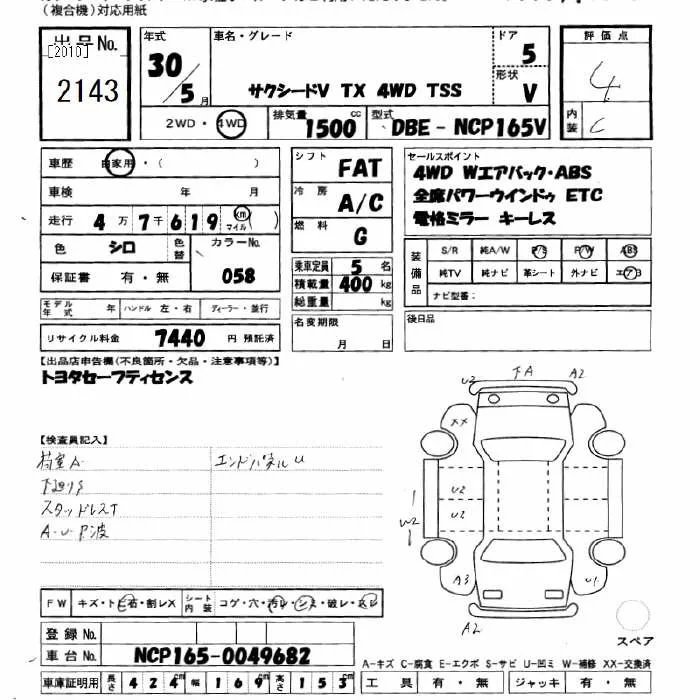 (複合機)対応用紙
出品No. [2010] 2143
年式 30/5月
車名・グレード サクシードV TX 4WD TSS
ドア 5
形状 V
評価点 4
内装 C
2WD・4WD
排気量 1500cc
型式 DBE-NCP165V
車歴 自家用・( )
シフト FAT
セールスポイント
4WD Wエアバック・ABS
全席パワーウインドゥ ETC
電格ミラー キーレス
車検 年 月
冷房 A/C
走行 4万7千619km マイル ( )
燃料 G
色 シロ 色替 カラーNo. 058
保証書 有・無
乗車定員 5名
積載量 400kg
総重量 kg
装備品 S/R 純A/W P/S P/W ABS
純TV 純ナビ 革シート 外ナビ エアB
ナビ型番:
モデル年式 年 ハンドル 左・右 ディーラー・並行
名変期限 月 日
後日品
リサイクル料金 7440円 預託済
【出品店申告欄(不良箇所・欠品・注意事項等)】
トヨタセーフティセンス
【検査員記入】
荷室A エンドパネルU
下廻りS
スタッドレスT
A・U・P波
U2 FA A2
XX
U2
U2
W2
A3 U1
A2
スペア
FW キズ・トビ石・割レX シート内装 コゲ・穴・汚レ・シミ・破レ・スレ
登録No.
車台No. NCP165-0049682
A-キズ C-腐食 E-エクボ S-サビ U-凹ミ W-補修 XX-交換済
車庫証明用 長さ 424cm 幅 169cm 高さ 153cm
工具 有・無 ジャッキ 有・無